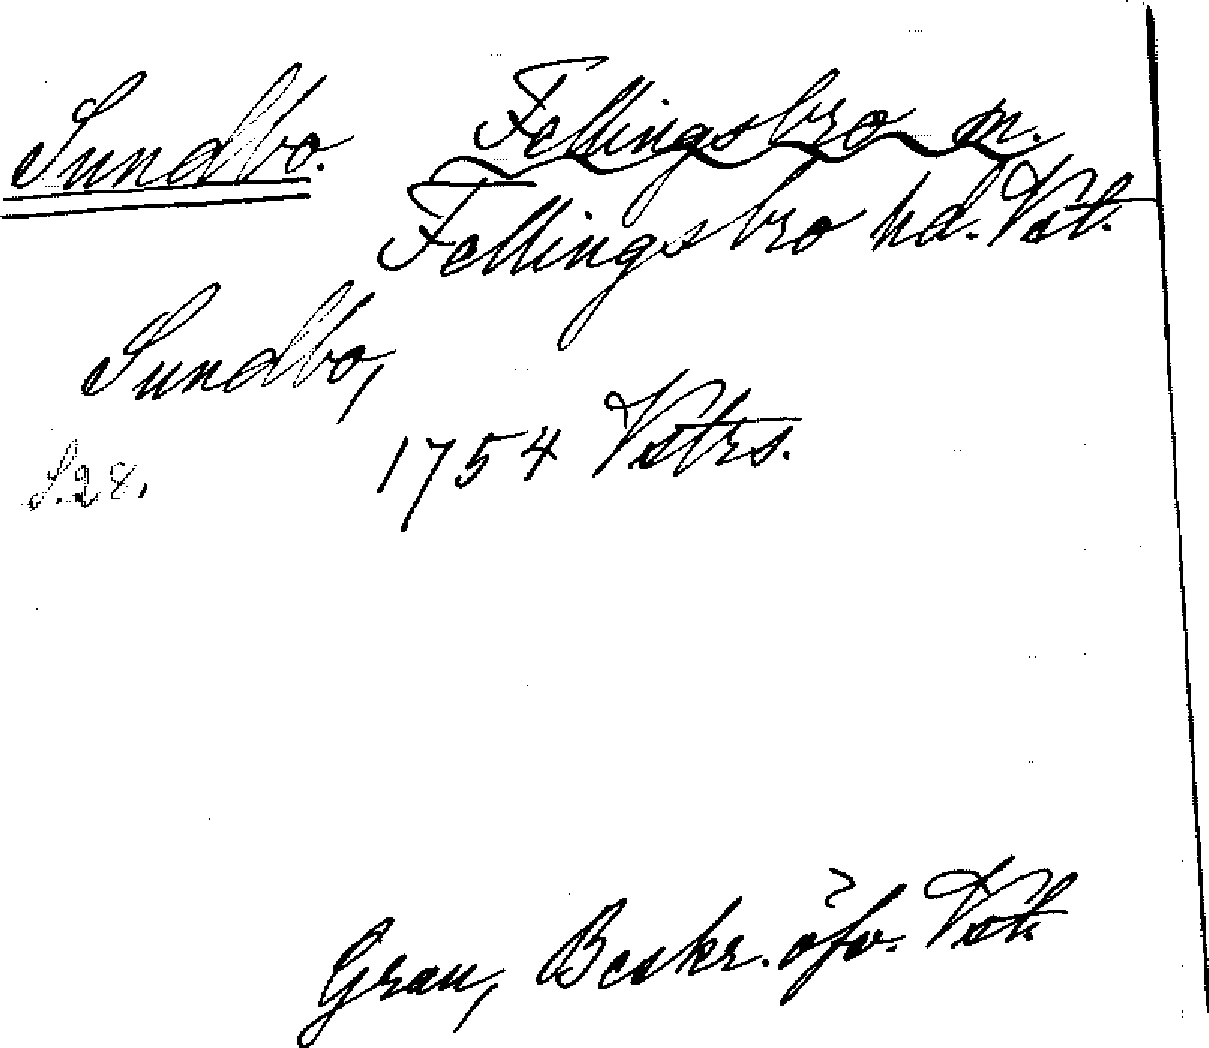 Sundbo. Fellingsbro sn.
Fellingsbro hd. Vstl.
Sundbo,
1754 Vstrs.
S. 28.
Grau, Beskr. öfv. Vstl